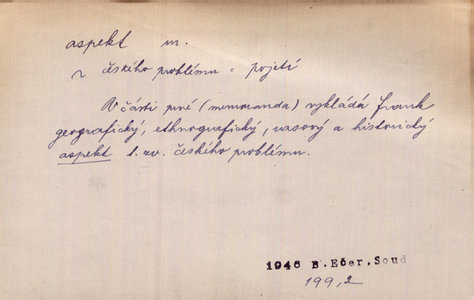 aspekt m.
~ českého problému = pojetí
V části prvé (memoranda) vykládá Frank
geografický, ethnografický, rasový a historický
aspekt t.zv. českého problému.
1946 B.Ečer.Soud
199,2